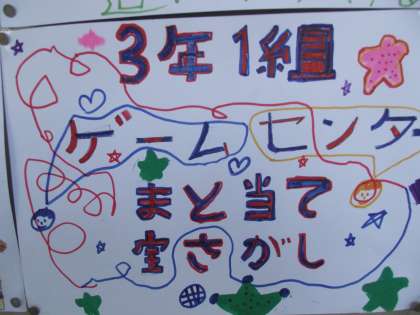 3年1組
ゲームセンタ
まと当て
宝さがし